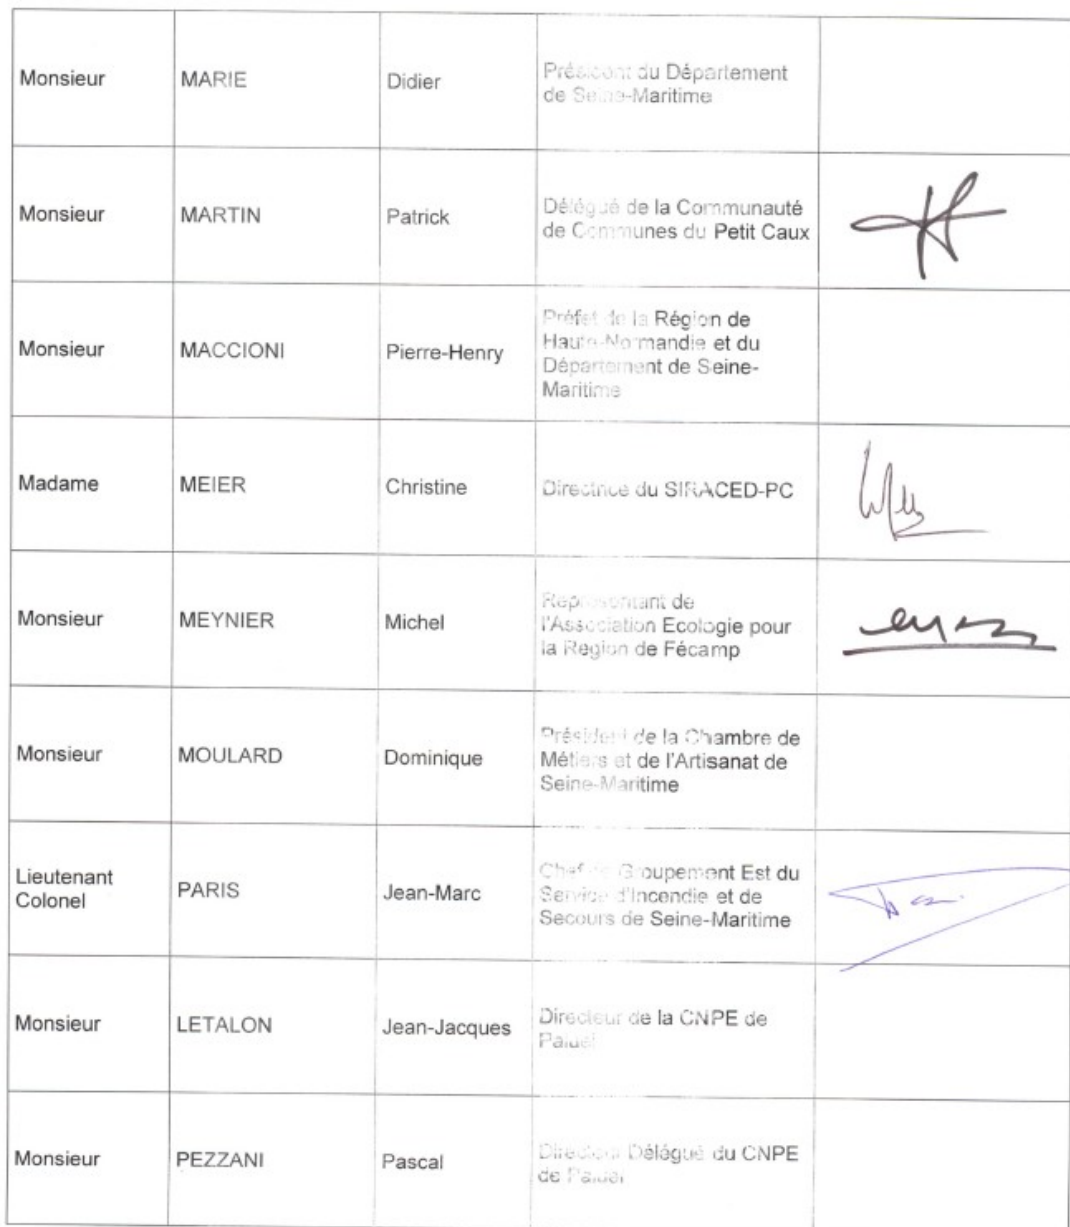 Monsieur MARIE Didier Président du Département
de Seine-Maritime
Monsieur MARTIN Patrick Délégué de la Communauté
de Communes du Petit Caux
Monsieur MACCIONI Pierre-Henry Préfet de la Région de
Haute-Normandie et du
Département de Seine-
Maritime
Madame MEIER Christine Directrice du SIRACED-PC
Monsieur MEYNIER Michel Représentant de
l'Association Ecologie pour
la Region de Fécamp
Monsieur MOULARD Dominique Président de la Chambre de
Métiers et de l'Artisanat de
Seine-Maritime
Lieutenant
Colonel PARIS Jean-Marc Chef de Groupement Est du
Service d'Incendie et de
Secours de Seine-Maritime
Monsieur LETALON Jean-Jacques Directeur de la CNPE de
Paluel
Monsieur PEZZANI Pascal Directeur Délégué du CNPE
de Paluel